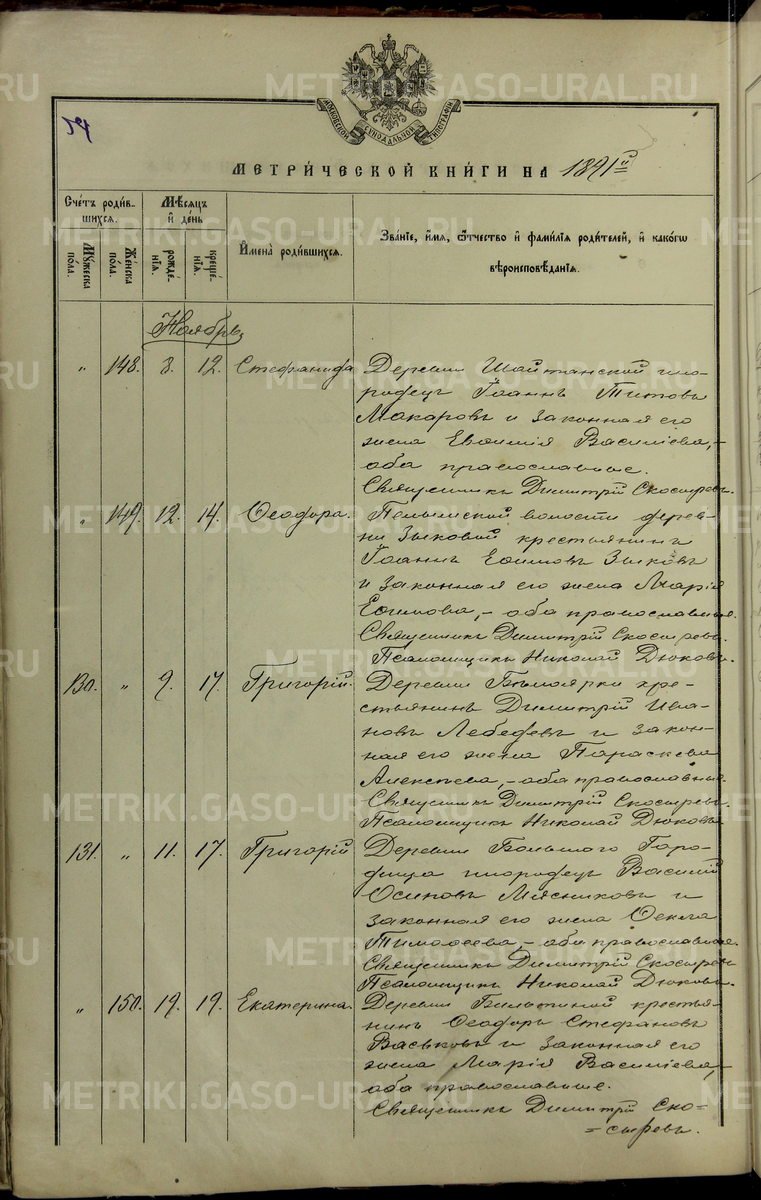 METRIKI.GASO-URAL.RU
МОСКОВСКОЙ СѴНОДАЛЬНОЙ ТИПОГРАФІИ
МЕТРИ́ЧЕСКОЙ КНИ́ГИ НА 1891й
Сче́тъ роди́в-
шихся.
Мꙋ́жеска по́ла.
Же́нска по́ла.
Мѣ́сяцъ
и҆ де́нь
рожде́-
нїѧ.
креще́-
нїѧ.
И҆мена̀ роди́вшихсѧ.
Зва́нїе, и҆́мѧ, ѻ҆́тчество и҆ фами́лїѧ роди́телей, и҆ како́гѡ
вѣроисповѣ́данїѧ.
Ноябрь
„ 148. 8. 12. Стефанида
Деревни Шайтанской ино-
родецъ Іоаннъ Титовъ
Макаровъ и законная его
жена Евѳимія Василіева,-
оба православные.
Священникъ Димитрій Скосыревъ.
„ 149. 12. 14. Ѳеодора.
волости дерев-
ни Зыковой крестьянинъ
Іоаннъ Ефимовъ Зыковъ
и законная его жена Марія
Ефимова,- оба православные.
Священникъ Димитрій Скосыревъ.
Псаломщикъ Николай Дюковъ.
130. „ 9. 17. Григорій.
Деревни Бѣлоярки кре-
стьянинъ Димитрій Ива-
новъ Лебедевъ и закон-
ная его жена Параскева
Алексѣева,- оба православные.
Священникъ Димитрій Скосыревъ.
Псаломщикъ Николай Дюковъ.
131. „ 11. 17. Григорій
Деревни Большого Горо-
дища инородецъ Василій
Осиповъ Мясниковъ и
законная его жена Ѳекла
Тимоѳеева,- оба православные.
Священникъ Димитрій Скосыревъ
Псаломщикъ Николай Дюковъ.
„ 150. 19. 19. Екатерина.
Деревни крестья-
нинъ Ѳеодоръ Стефановъ
Васьковъ и законная его
жена Марія Василіева,-
оба православные.
Священникъ Димитрій Ско=
=сыревъ.